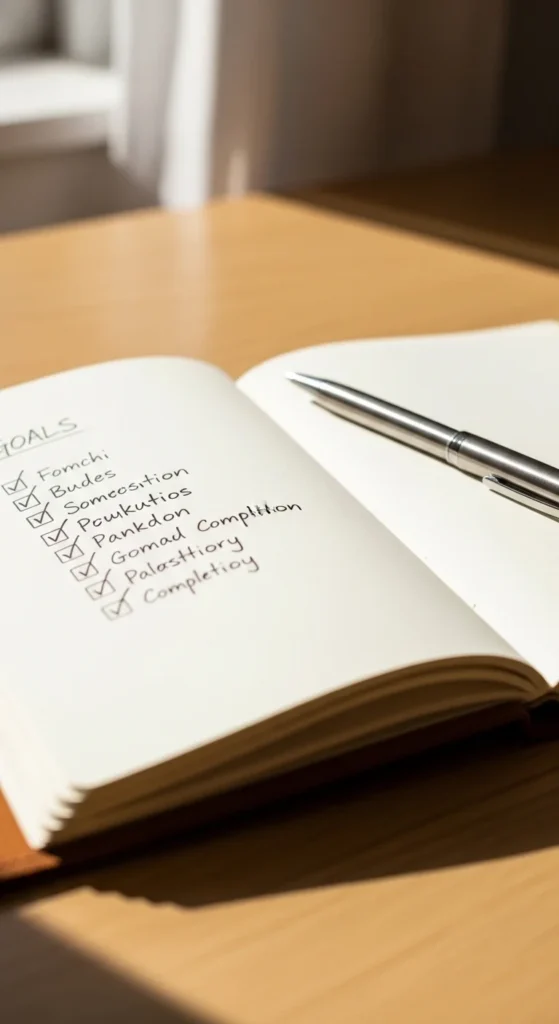 GOALS
Fomchi
Budes
Somecosition
Powkutios
Pankdon
Gomad Complttion
Palasttiory
Completioy